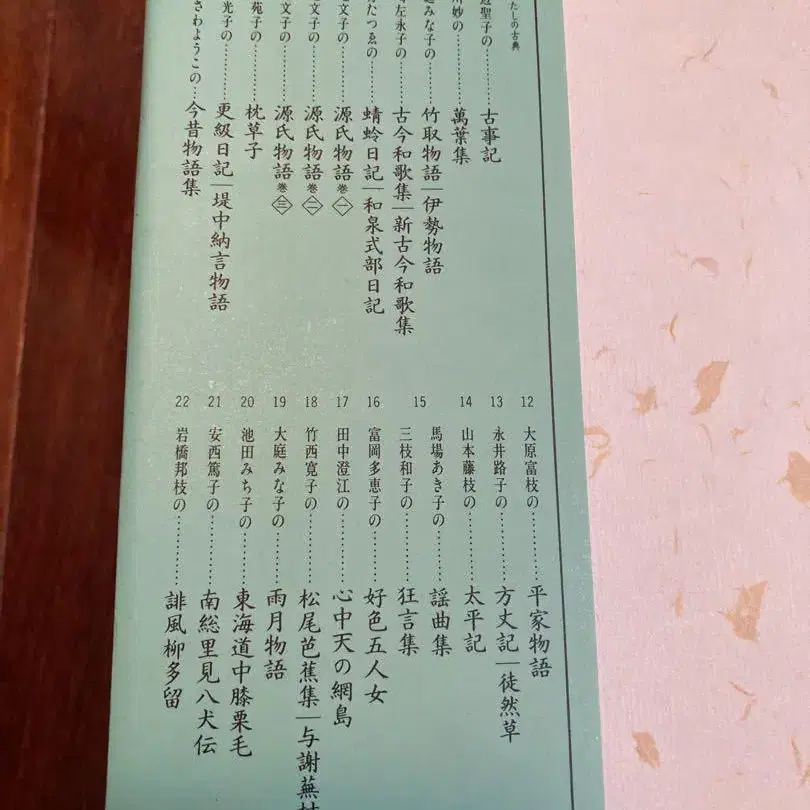 たしの古典
聖子の………古事記
妙の………萬葉集
みな子の………竹取物語|伊勢物語
左永子の………古今和歌集|新古今和歌集
たつゑの………蜻蛉日記|和泉式部日記
文子の………源氏物語 巻一
文子の………源氏物語 巻二
文子の………源氏物語 巻三
苑子の………枕草子
光子の………更級日記|堤中納言物語
さわようこの…今昔物語集
12 大原富枝の………平家物語
13 永井路子の………方丈記|徒然草
14 山本藤枝の………太平記
15 馬場あき子の………謡曲集
三枝和子の………狂言集
16 富岡多恵子の………好色五人女
17 田中澄江の………心中天の網島
18 竹西寛子の………松尾芭蕉集|与謝蕪村
19 大庭みな子の………雨月物語
20 池田みち子の………東海道中膝栗毛
21 安西篤子の………南総里見八犬伝
22 岩橋邦枝の………誹風柳多留